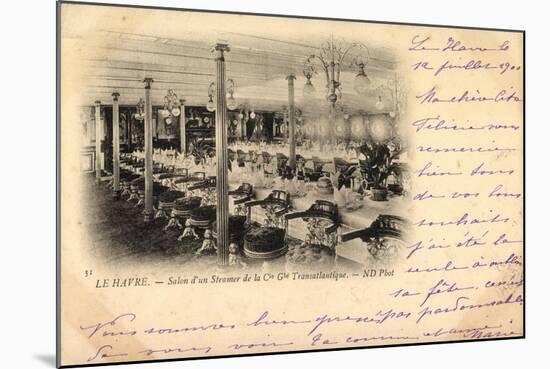 Le Havre le
12 Juillet 1900
Ma chère
Félicie nous
remercie
bien tous
de vos bons
souhaits
j'ai été la
seule à
sa fête,
Nous sommes bien pressés pas
de vous voir comme et
Marie
51
LE HAVRE. — Salon d'un Steamer de la Cie Gle Transatlantique. — ND Phot